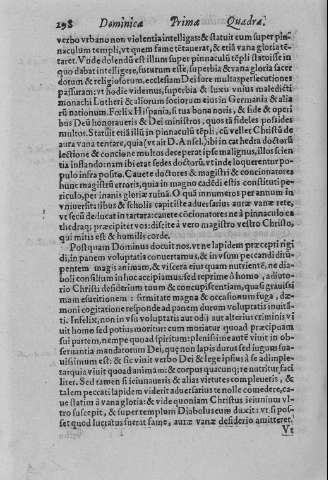 298 Dominica Prima Quadra.
verbo vrbano non violentia intelligas: & statuit eum super pin-
naculum templi, vt quem fame tētauerat, & etiā vana gloria tē-
taret. Vnde dolendū est illum super pinnaculū tēpli statuisse in
quo dabat intelligere, futurum esse, superbia & vana gloria sacer
dotum & religiosorum, ecclesiam Dei multas persecutiones
passuram: vt hodie videmus, superbia & luxu vnius maledicti
monachi Lutheri & aliorum sotiorum eius in Germania & alia
rū nationum. Fœlix Hispania, si tua bona noris, & fide & operi
bus Deū honraueris & Dei ministros, quos tā fideles possides
multos. Statuit etiā illū in pinnaculū tēpli, cū vellet Christū de
aura vana tentare, quia (vt ait D. Ansel.) ibi in cathedra doctorū
lectione & concione multos deceperat ipse malignus, illos scien
tia instando: nam ibi erat sedes doctorū, vt inde loquerentur po-
pulo infra posito. Cauete doctores & magistri & concionatores
hunc magistrū erroris, quia in magno cadēdi estis constituti pe-
riculo, per inanis gloriæ ruinā. O quā innumeros per annum in
vniuersitatibus & scholis capit iste aduersarius auræ vanæ rete,
vt secū deducat in tartara: cauete cōcionatores ne à pinnaculo ca
thedræq; præcipitet vos: discite à vero magistro vestro Christo,
qui mitis est & humilis corde.
Postquam Dominus docuit nos, vt ne lapidem præcepti rigi
di, in panem voluptatis conuertamus, & in vsum peccandi diru-
pentem magis animam, & viscera eius quam nutrientē, ne dia-
boli consilium in hoc accipiamus: sed reprime ò homo, adiuto-
rio Christi desiderium tuum & concupiscentiam, quasi grauissi
mam esuritionem: firmitate magna & occasionum fuga, dæ-
moni cogitatione responde ad panem durum voluptatis inuitā-
ti. Infelix, non in vsu voluptatis aurodij aut alterius criminis vi
uit homo sed potius moritur: cum moriatur quoad præcipuam
sui partem, nempe quoad spiritum: plenissime autē viuit in ob-
seruantia mandatorum Dei, quæ non lapis durus sed iugum sua
uissimum est: & sic viuit verbo Dei & lege ipsius: à se adimple-
ta quia viuit quoad animā: & corpus quacunq; re nutritur faci
liter. Sed tamen si ieiunaueris & alias virtutes compleueris, &
talem peccati lapidem viderit aduersarius te nolle comedere, ca-
ue statim à vana gloria: & vide quoniam Christus ieiunium vl-
tro suscepit, & super templum Diabolus eum duxit: vt si pos-
set quod lucratus fuerat fame, auræ vanæ desiderio amitteret.
Vt